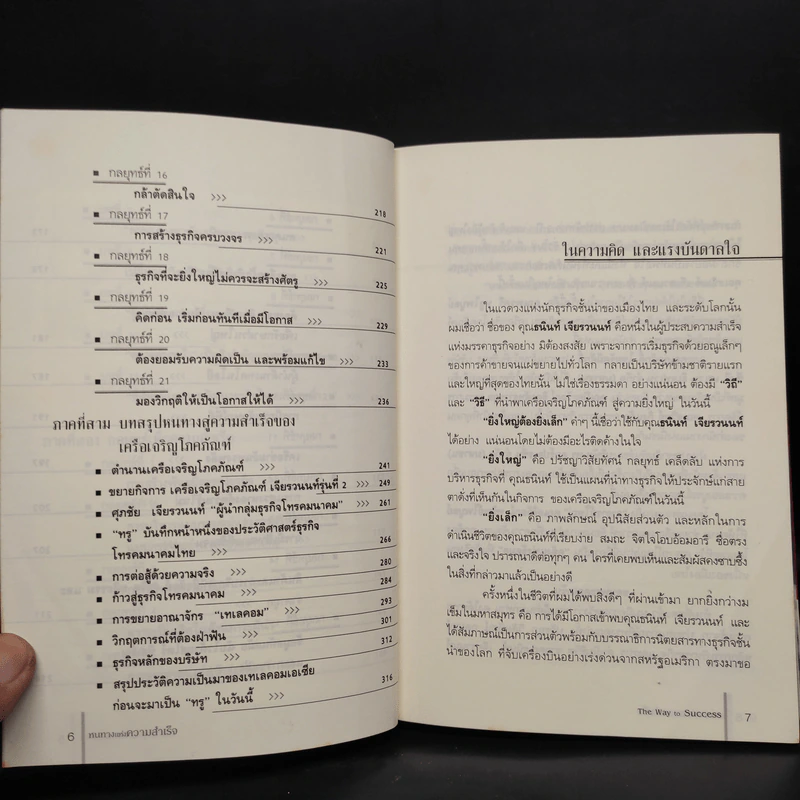 ■ กลยุทธ์ที่ 16
กล้าตัดสินใจ >>> 218
■ กลยุทธ์ที่ 17
การสร้างธุรกิจครบวงจร >>> 221
■ กลยุทธ์ที่ 18
ธุรกิจที่จะยิ่งใหญ่ไม่ควรจะสร้างศัตรู >>> 225
■ กลยุทธ์ที่ 19
คิดก่อน เริ่มก่อนทันทีเมื่อมีโอกาส >>> 229
■ กลยุทธ์ที่ 20
ต้องยอมรับความผิดเป็น และพร้อมแก้ไข >>> 233
■ กลยุทธ์ที่ 21
มองวิกฤติให้เป็นโอกาสให้ได้ >>> 236
ภาคที่สาม บทสรุปหนทางสู่ความสำเร็จของ
เครือเจริญโภคภัณฑ์
■ ตำนานเครือเจริญโภคภัณฑ์ >>> 241
■ ขยายกิจการ เครือเจริญโภคภัณฑ์ เจียรวนนท์รุ่นที่ 2 >>> 249
■ ศุภชัย เจียรวนนท์ "ผู้นำกลุ่มธุรกิจโทรคมนาคม" >>> 261
■ "ทรู" บันทึกหน้าหนึ่งของประวัติศาสตร์ธุรกิจ
โทรคมนาคมไทย >>> 266
■ การต่อสู้ด้วยความจริง >>> 280
■ ก้าวสู่ธุรกิจโทรคมนาคม >>> 284
■ การขยายอาณาจักร "เทเลคอม" >>> 293
■ วิกฤตการณ์ที่ต้องฝ่าฟัน >>> 301
■ ธุรกิจหลักของบริษัท >>> 312
■ สรุปประวัติความเป็นมาของเทเลคอมเอเซีย
ก่อนจะมาเป็น "ทรู" ในวันนี้ >>> 316
6 หนทางแห่งความสำเร็จ
ในความคิด และแรงบันดาลใจ
ในแวดวงแห่งนักธุรกิจชั้นนำของเมืองไทย และระดับโลกนั้น
ผมเชื่อว่า ชื่อของ คุณธนินท์ เจียรวนนท์ คือหนึ่งในผู้ประสบความสำเร็จ
แห่งมรรคาธุรกิจอย่าง มิต้องสงสัย เพราะจากการเริ่มธุรกิจด้วยอณูเล็กๆ
ของการค้าขายจนแผ่ขยายไปทั่วโลก กลายเป็นบริษัทข้ามชาติรายแรก
และใหญ่ที่สุดของไทยนั้น ไม่ใช่เรื่องธรรมดา อย่างแน่นอน ต้องมี "วิถี"
และ "วิธี" ที่นำพาเครือเจริญโภคภัณฑ์ สู่ความยิ่งใหญ่ ในวันนี้
"ยิ่งใหญ่ต้องยิ่งเล็ก" คำๆ นี้เชื่อว่าใช้กับคุณธนินท์ เจียรวนนท์
ได้อย่าง แน่นอนโดยไม่ต้องมีอะไรติดค้างในใจ
"ยิ่งใหญ่" คือ ปรัชญาวิสัยทัศน์ กลยุทธ์ เคล็ดลับ แห่งการ
บริหารธุรกิจที่ คุณธนินท์ ได้ใช้เป็นแผนที่นำทางธุรกิจให้ประจักษ์แก่สาย
ตาดังที่เห็นกันในกิจการ ของเครือเจริญโภคภัณฑ์ในวันนี้
"ยิ่งเล็ก" คือ ภาพลักษณ์ อุปนิสัยส่วนตัว และหลักในการ
ดำเนินชีวิตของคุณธนินท์ที่เรียบง่าย สมถะ จิตใจโอบอ้อมอารี ซื่อตรง
และจริงใจ ปรารถนาดีต่อทุกๆ คน ใครที่เคยพบเห็นและสัมผัสคงซาบซึ้ง
ในสิ่งที่กล่าวมาแล้วเป็นอย่างดี
ครั้งหนึ่งในชีวิตที่ผมได้พบสิ่งดีๆ ที่ผ่านเข้ามา ยากยิ่งกว่างม
เข็มในมหาสมุทร คือ การได้มีโอกาสเข้าพบคุณธนินท์ เจียรวนนท์ และ
ได้สัมภาษณ์เป็นการส่วนตัวพร้อมกับบรรณาธิการนิตยสารทางธุรกิจชั้น
นำของโลก ที่จับเครื่องบินอย่างเร่งด่วนจากสหรัฐอเมริกา ตรงมาขอ
The Way to Success 7